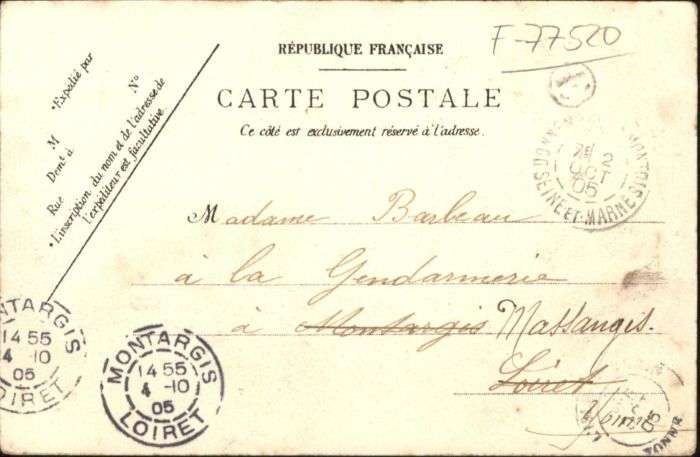 F-77520
RÉPUBLIQUE FRANÇAISE
CARTE POSTALE
Ce côté est exclusivement réservé à l'adresse.
*Expédié par
M
N°
Demt à
Rue
*L'inscription du nom et de l'adresse de
l'expéditeur est facultative
2
OCT
05
SEINE ET MARNE
Madame Barbeau
à la Gendarmerie
à Montargis Massangis.
Loiret
Yonne
MONTARGIS
14 55
4 -10
05
LOIRET
MONTARGIS
14 55
4 -10
05
LOIRET
YONNE